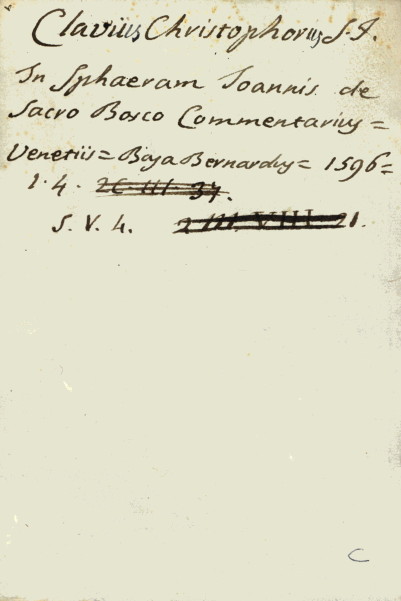 Clavius Christophorus S.J.
In Sphaeram Joannis de
Sacro Bosco Commentarius =
Venetiis = Basa Bernardus = 1596 =
1. 4. 2C III 37.
S. V. 4. 2 III VIII 21.
C